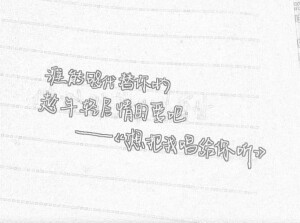 谁能够代替你呐
趁年轻尽情的爱吧
——《想把我唱给你听》